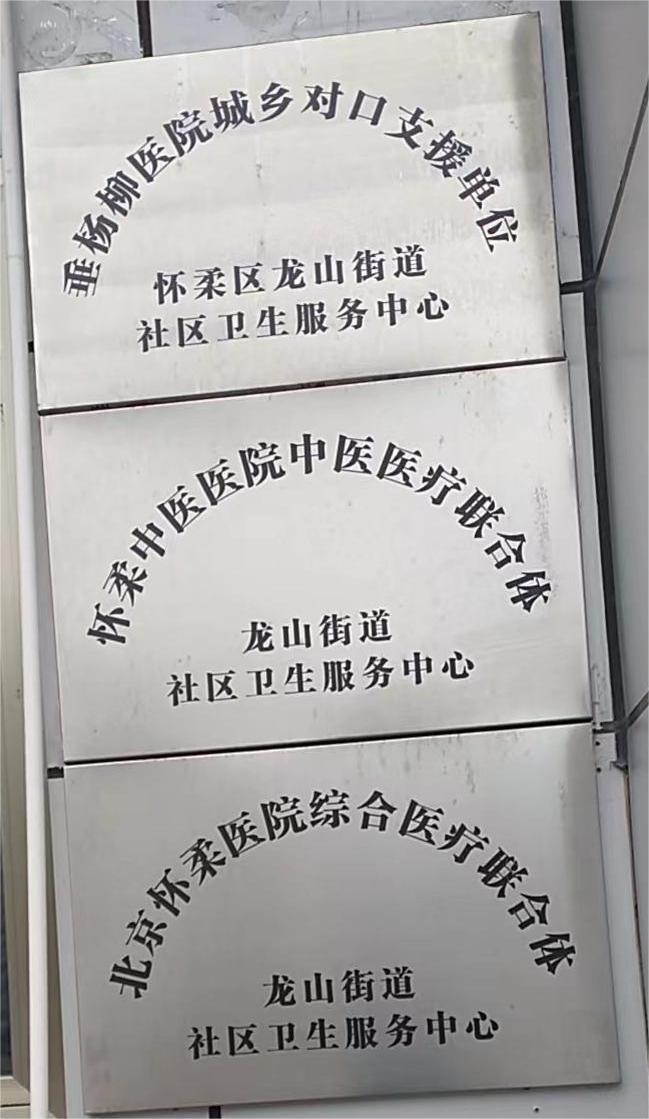 垂杨柳医院城乡对口支援单位
怀柔区龙山街道
社区卫生服务中心
怀柔中医医院中医医疗联合体
龙山街道
社区卫生服务中心
北京怀柔医院综合医疗联合体
龙山街道
社区卫生服务中心